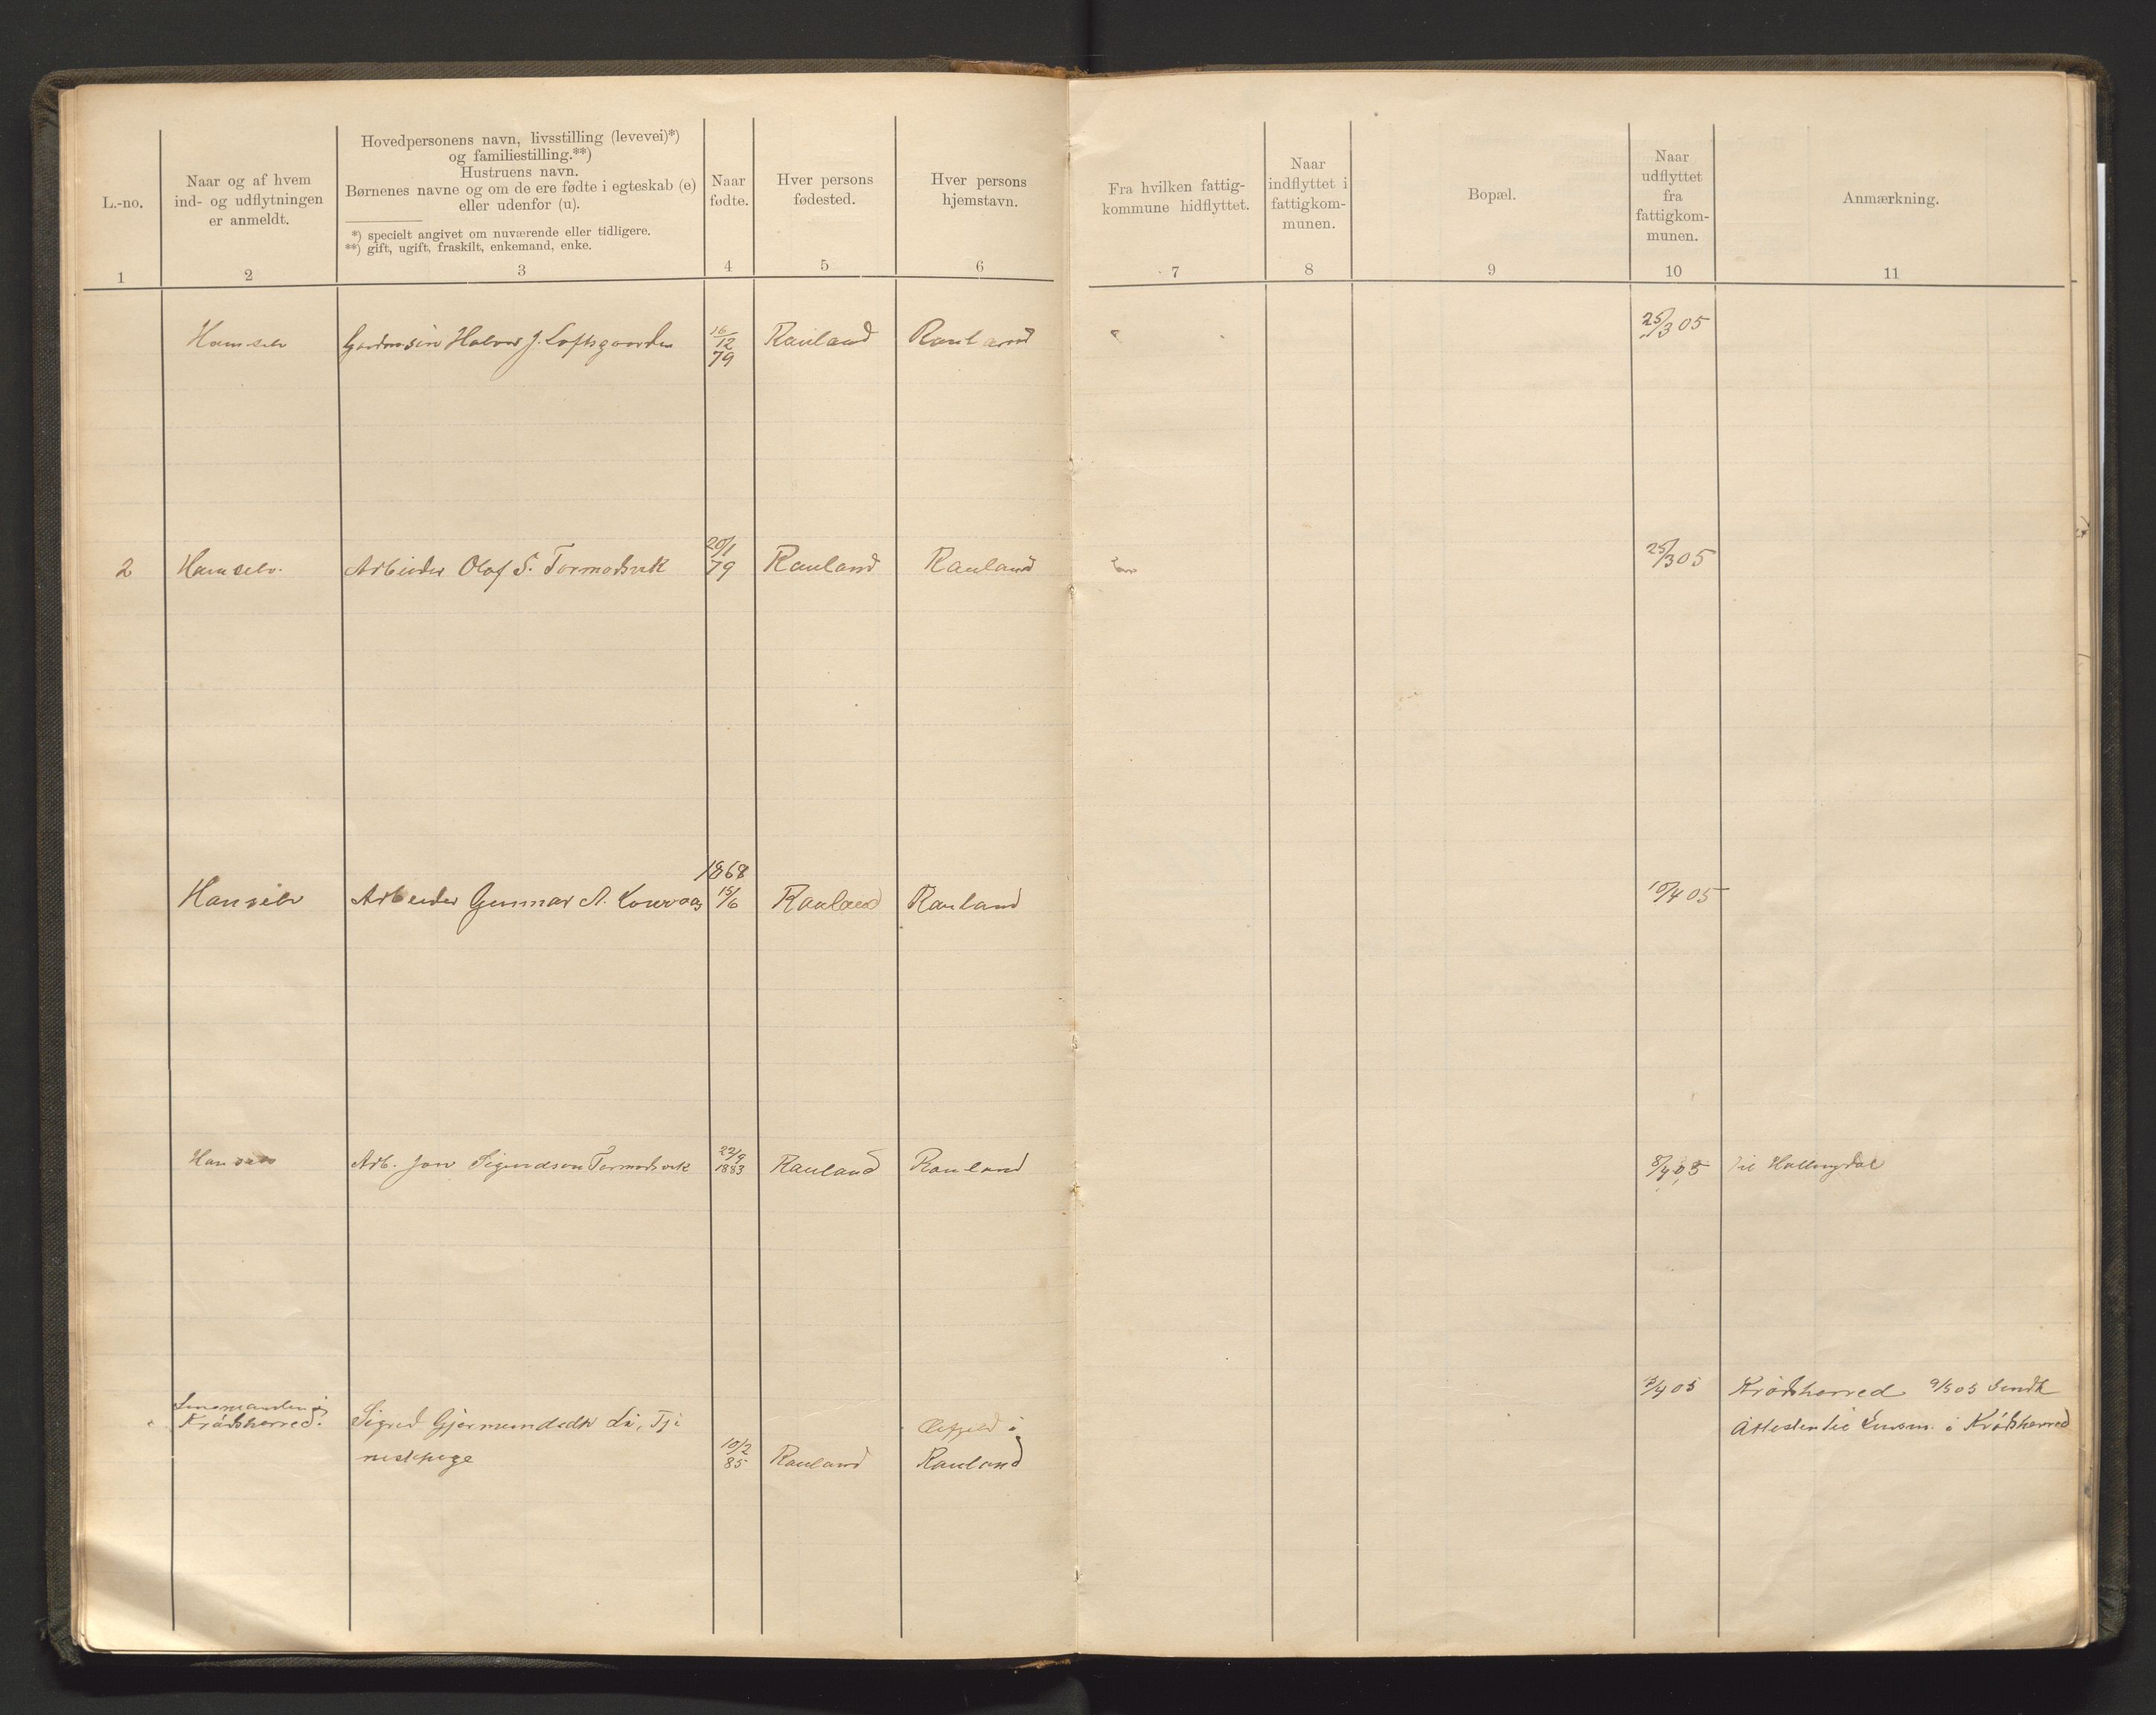 L.-no.
Naar og af hvem
ind- og udflytningen
er anmeldt.
Hovedpersonens navn, livsstilling (levevei)*)
og familiestilling.**)
Hustruens navn.
Børnenes navne og om de ere fødte i egteskab (e)
eller udenfor (u).
*) specielt angivet om nuværende eller tidligere.
**) gift, ugift, fraskilt, enkemand, enke.
Naar
fødte.
Hver persons
fødested.
Hver persons
hjemstavn.
Fra hvilken fattig-
kommune hidflyttet.
Naar
indflyttet i
fattigkom-
munen.
Bopæl.
Naar
udflyttet
fra
fattigkom-
munen.
Anmærkning.
1 2 3 4 5 6 7 8 9 10 11
Ham selv Halvor J. Loftsgaarden 16/12 79 Rauland Rauland 25/3 05
2 Ham selv. Arbeider Olaf S. Tormodsvik 20/1 79 Rauland Rauland 25/3 05
1868
Han selv Arbeider Gunnar A. 15/6 Rauland Rauland 10/4 05
Han selv Arb. Jon Sigurdson Tormodsvik 22/9 1883 Rauland Rauland 8/4 05 Til Hallingdal
Lensmanden i
Krødsherred.
Sigrid Gjermundsdtr Li, Tje
nestepige
10/2 85 Rauland
i
Rauland
/4 05 Krødsherred 9/5 05 Sendt
Attesten til Lensm. i Krødsherred